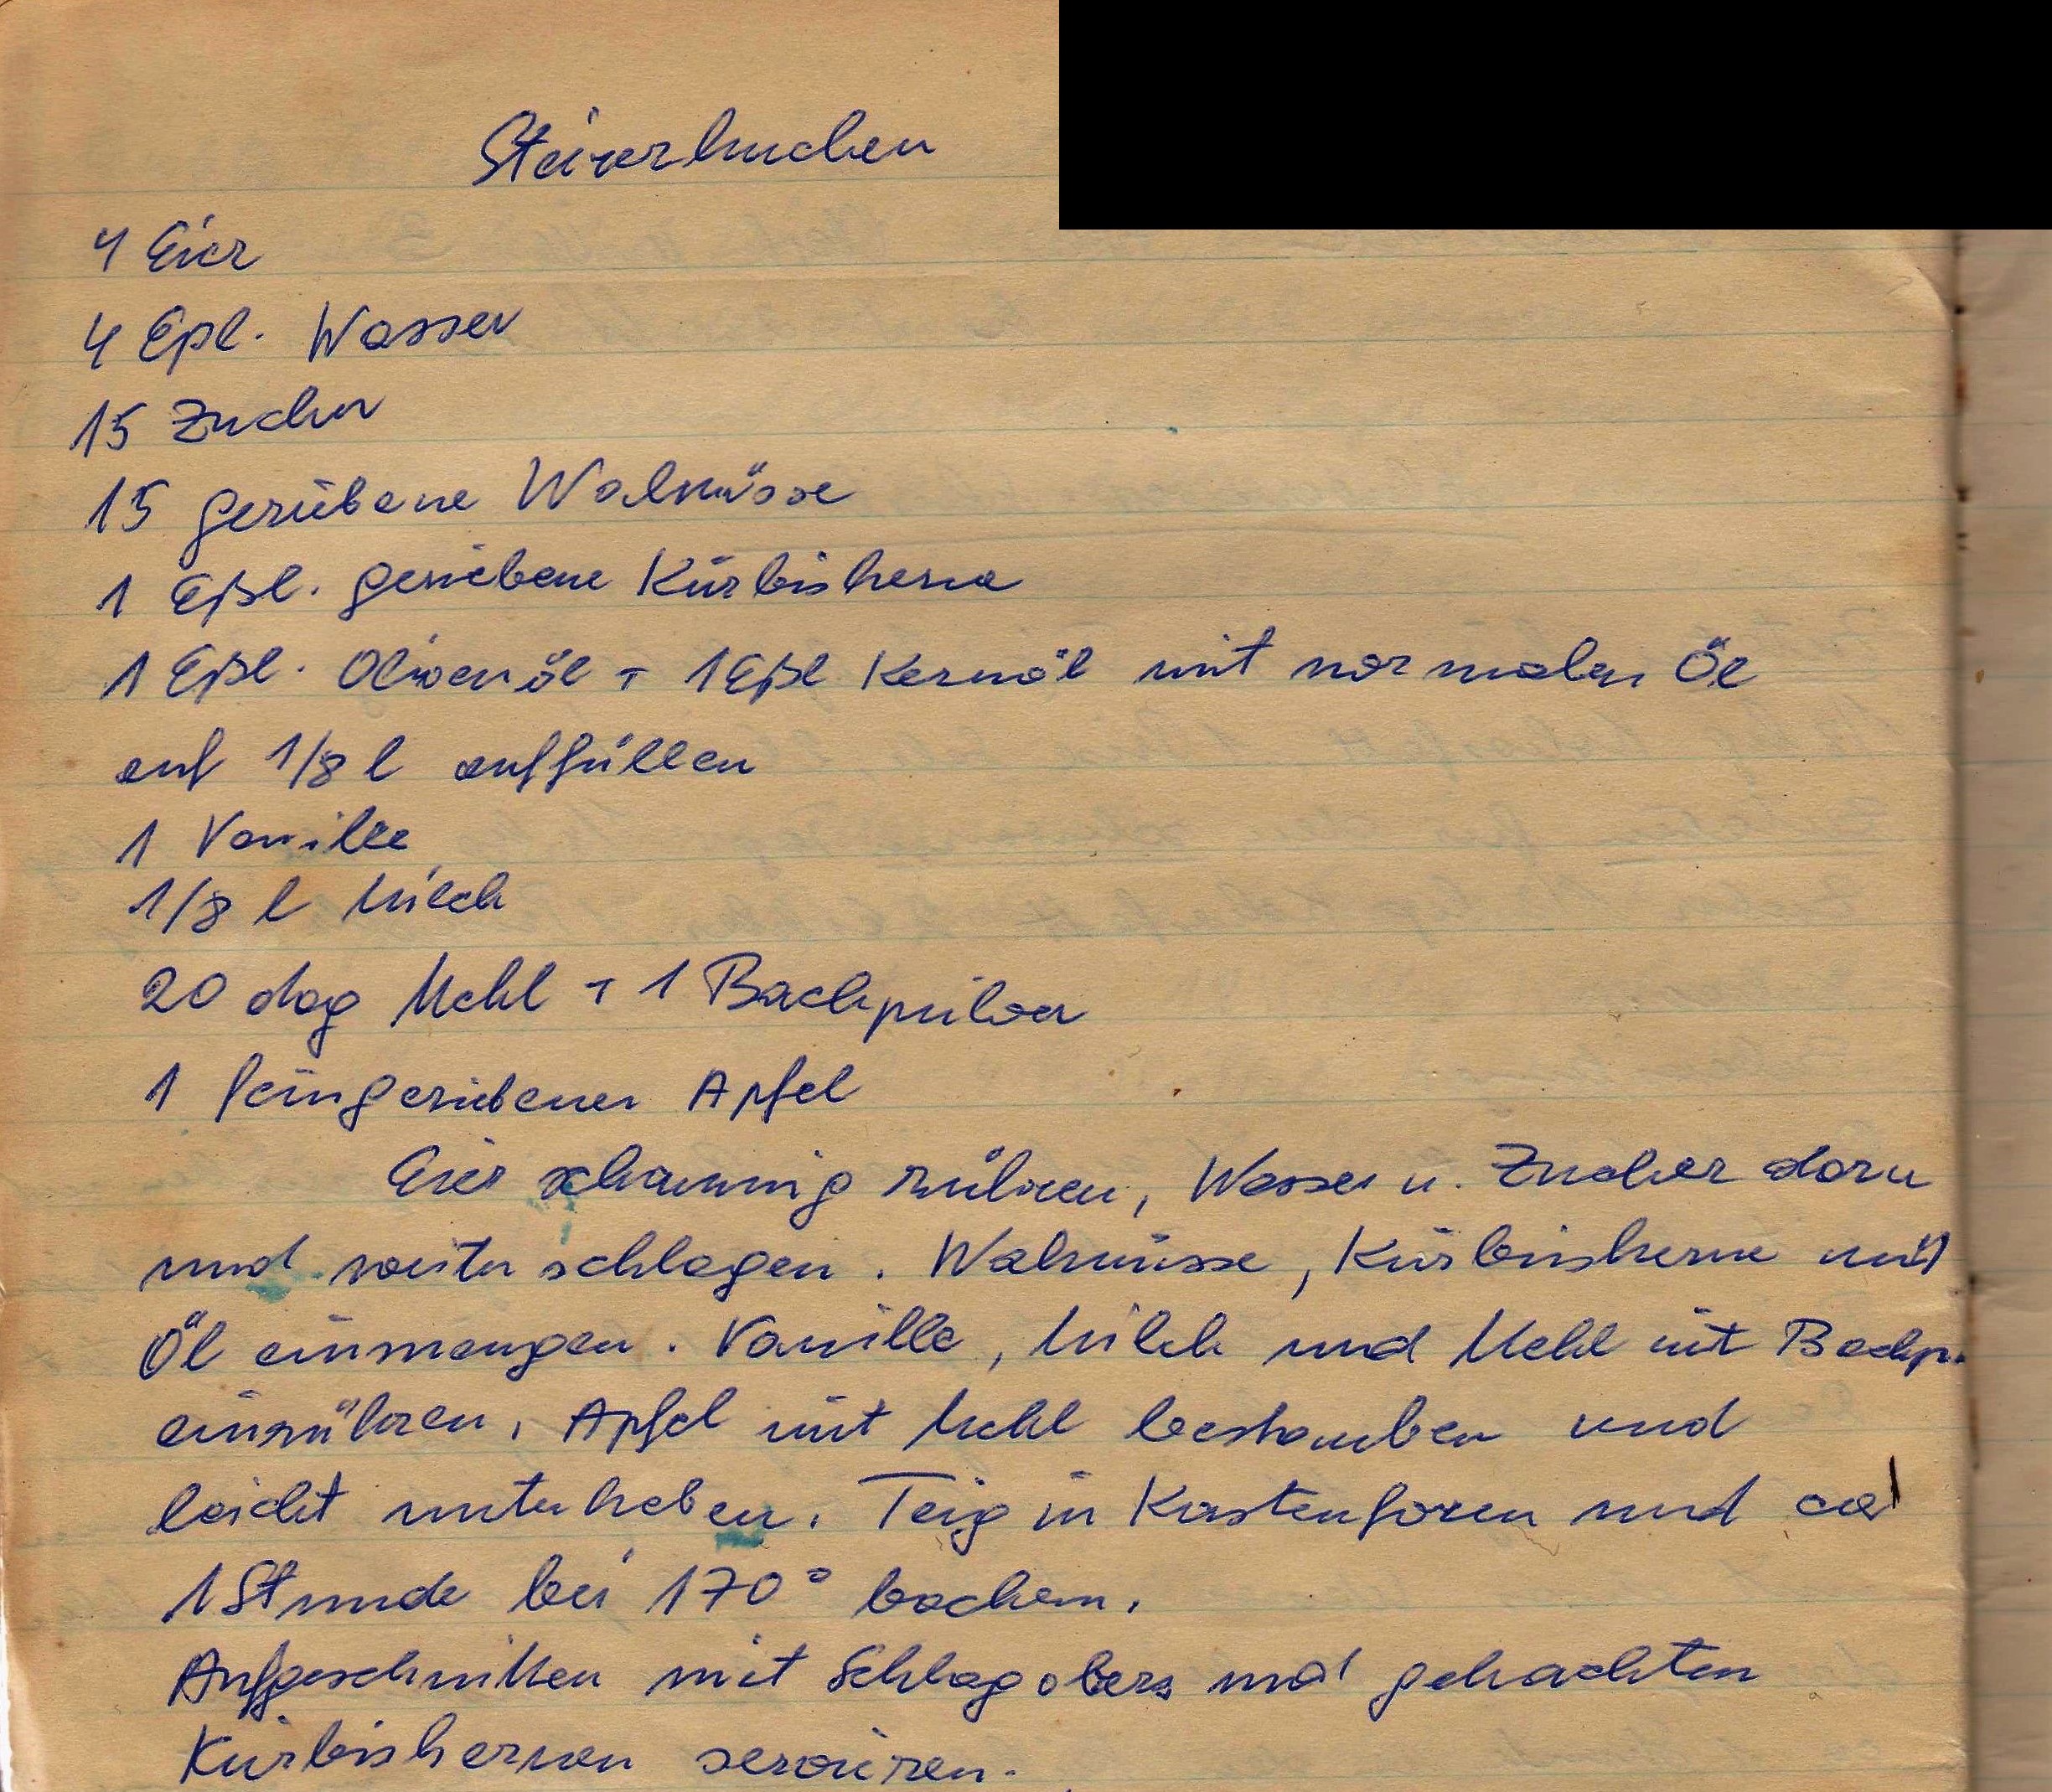 Steirerkuchen
4 Eier
4 Eßl. Wasser
15 Zucker
15 geriebene Walnüsse
1 Eßl. geriebene Kürbiskerne
1 Eßl. Olivenöl + 1 Eßl Kernöl mit normalen Öl
auf 1/8 l auffüllen
1 Vanille
1/8 l Milch
20 dag Mehl + 1 Backpulver
1 feingeriebener Apfel
Eier schaumig rühren, Wasser u. Zucker dazu
und weiter schlagen. Walnüsse, Kürbiskerne und
Öl einmengen. Vanille, Milch und Mehl mit Backp.
einrühren. Apfel mit Mehl bestauben und
leicht unterheben. Teig in Kastenform und ca
1 Stunde bei 170° backen.
Aufgeschnitten mit Schlagobers und gehackten
Kürbiskernen servieren.